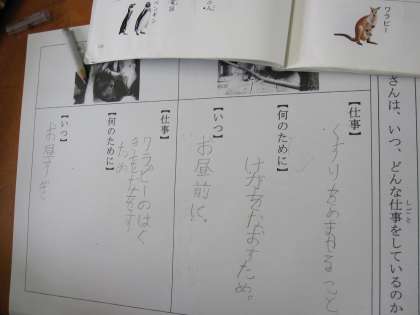 ワラビー
ペンギン
さんは、いつ、どんな仕事をしているのか
しごと
【仕事】
こと
【何のために】
けがをなおすため。
【いつ】
お昼前に。
【仕事】
ワラビーのはく
ため
【何のために】
【いつ】
お昼すぎ